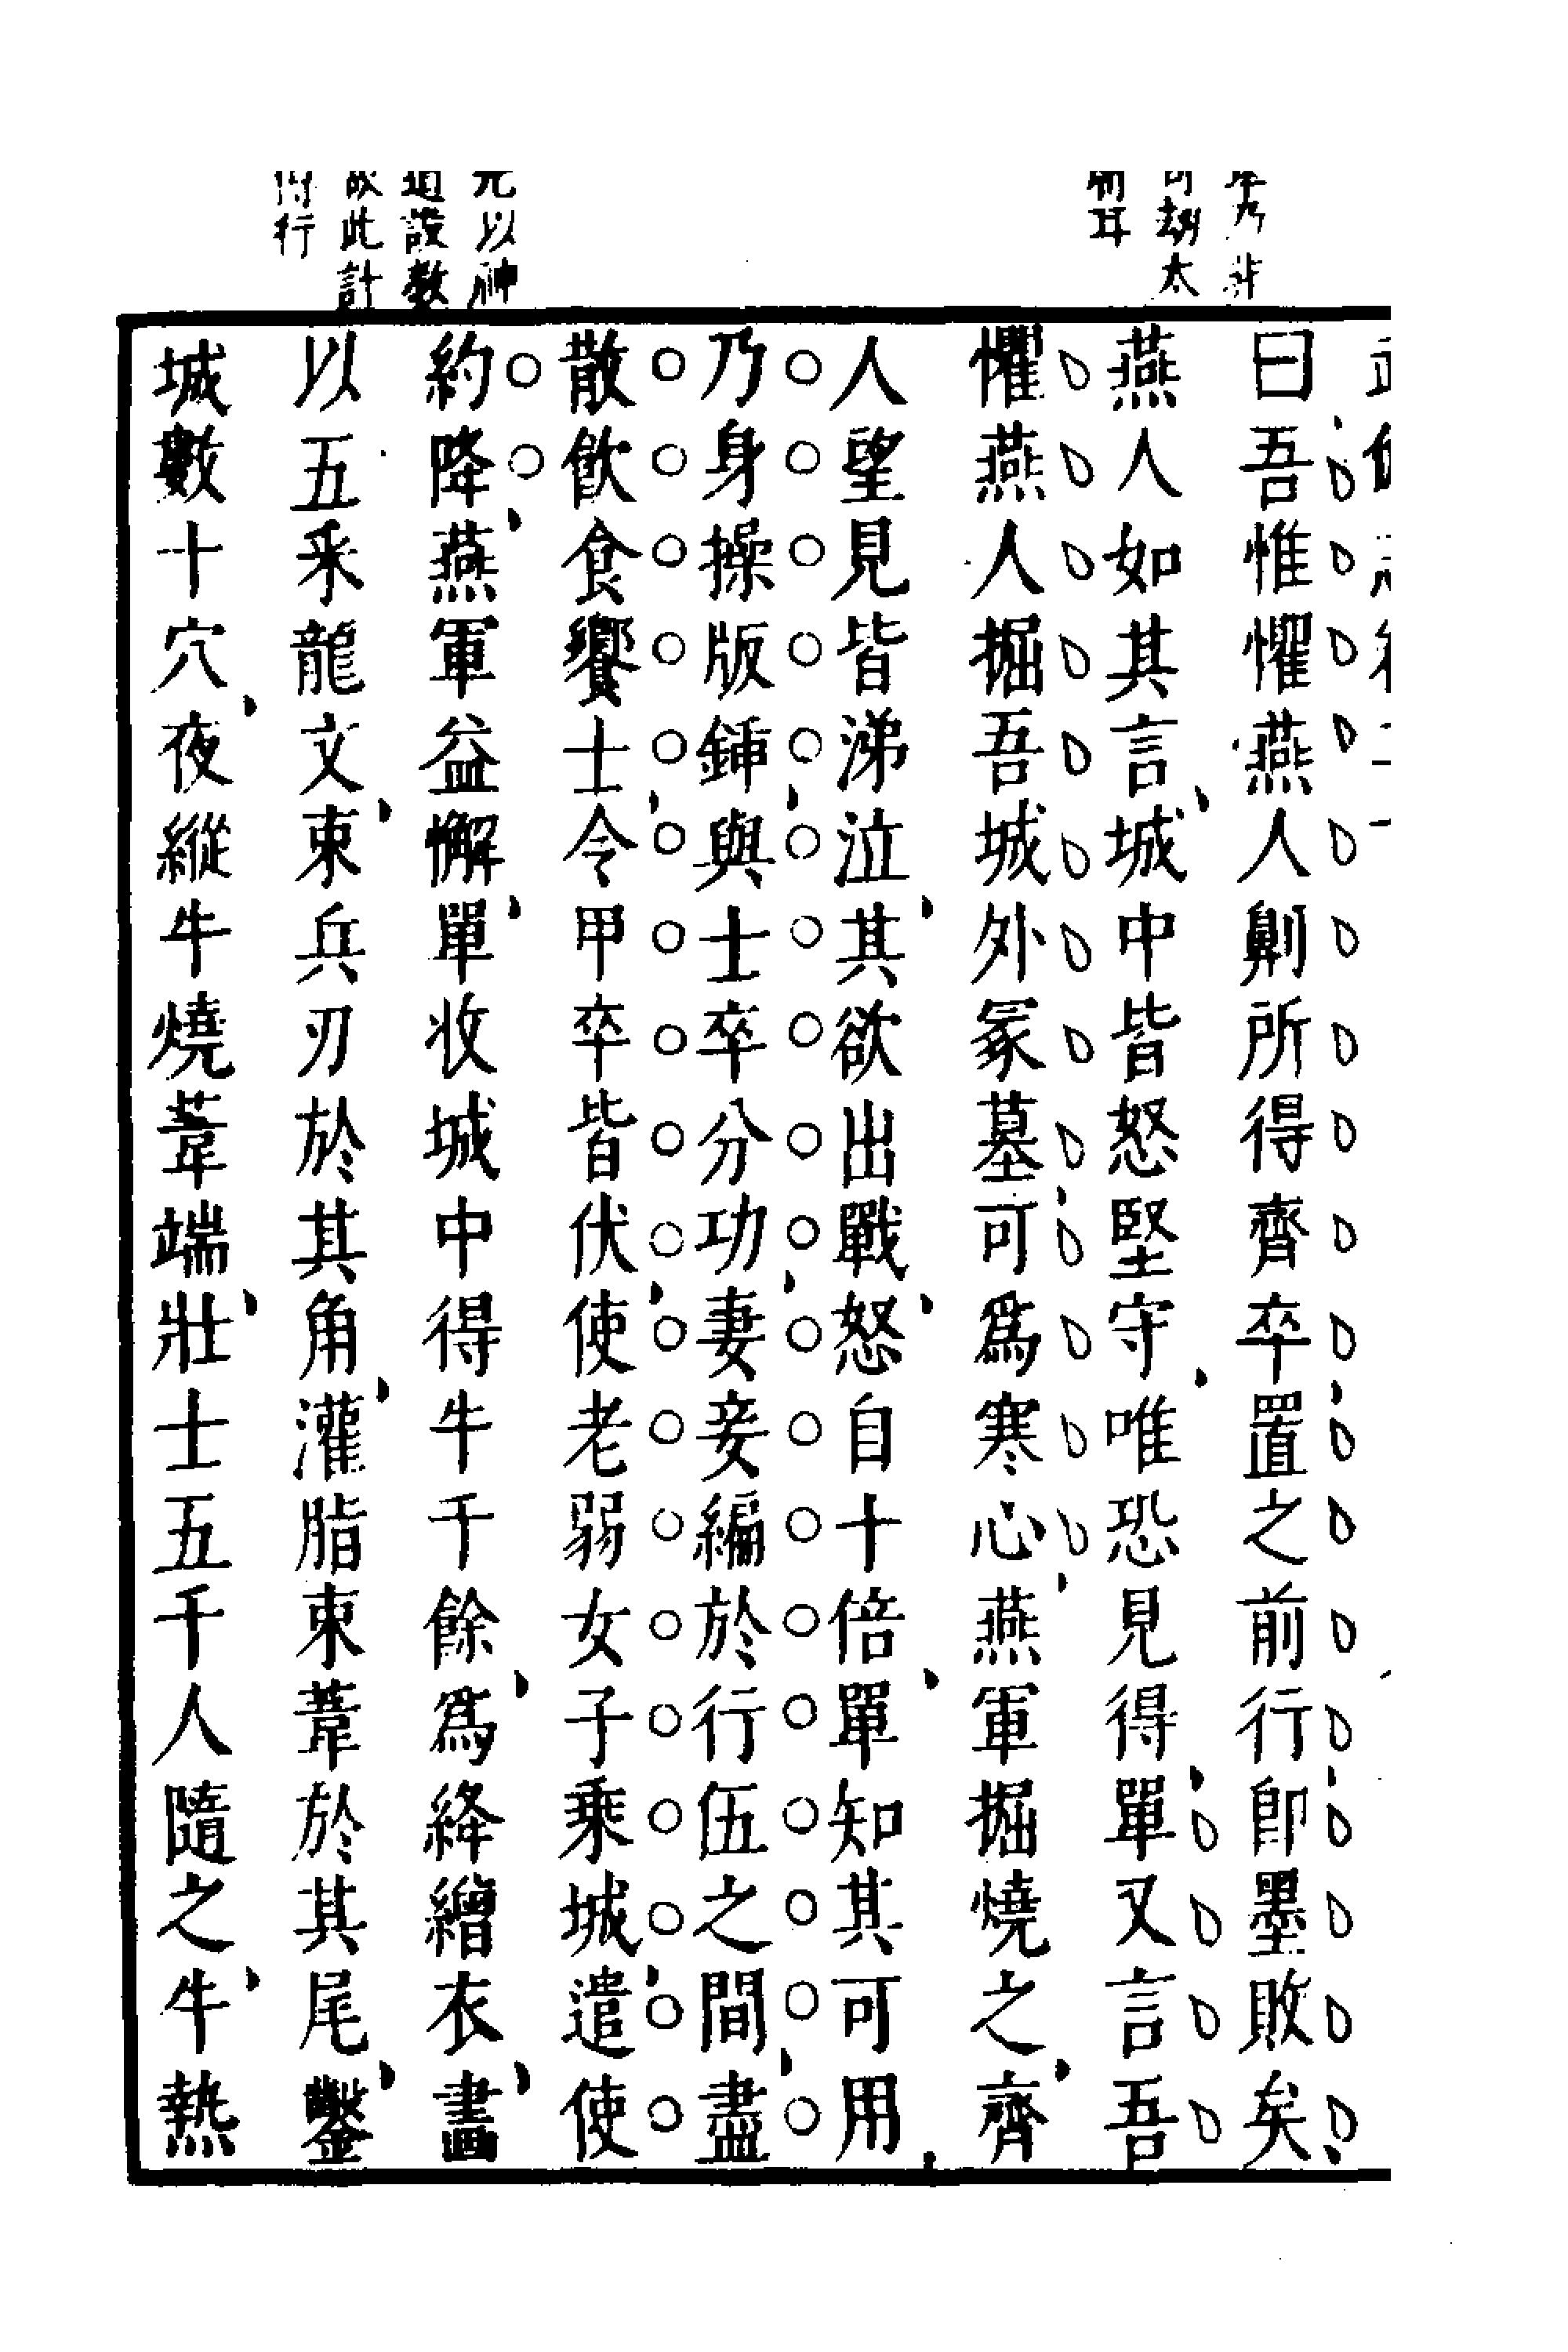 曰吾惟懼燕人劓所得齊卒置之前行卽墨敗矣
燕人如其言城中皆怒堅守唯恐見得單又言吾
懼燕人掘吾城外冢墓可爲寒心燕軍掘燒之齊
人望見皆涕泣其欲出戰怒自十倍單知其可用
乃身操版鍤與士卒分功妻妾編於行伍之間盡
散飮食饗士令甲卒皆伏使老弱女子乘城遣使
約降燕軍益懈單收城中得牛千餘爲絳繒衣畫
以五采龍文束兵刃於其角灌脂束葦於其尾鑿
城數十穴夜縱牛燒葦端壯士五千人隨之牛熱
劫太
耳
以神
道設教
故此計
得行